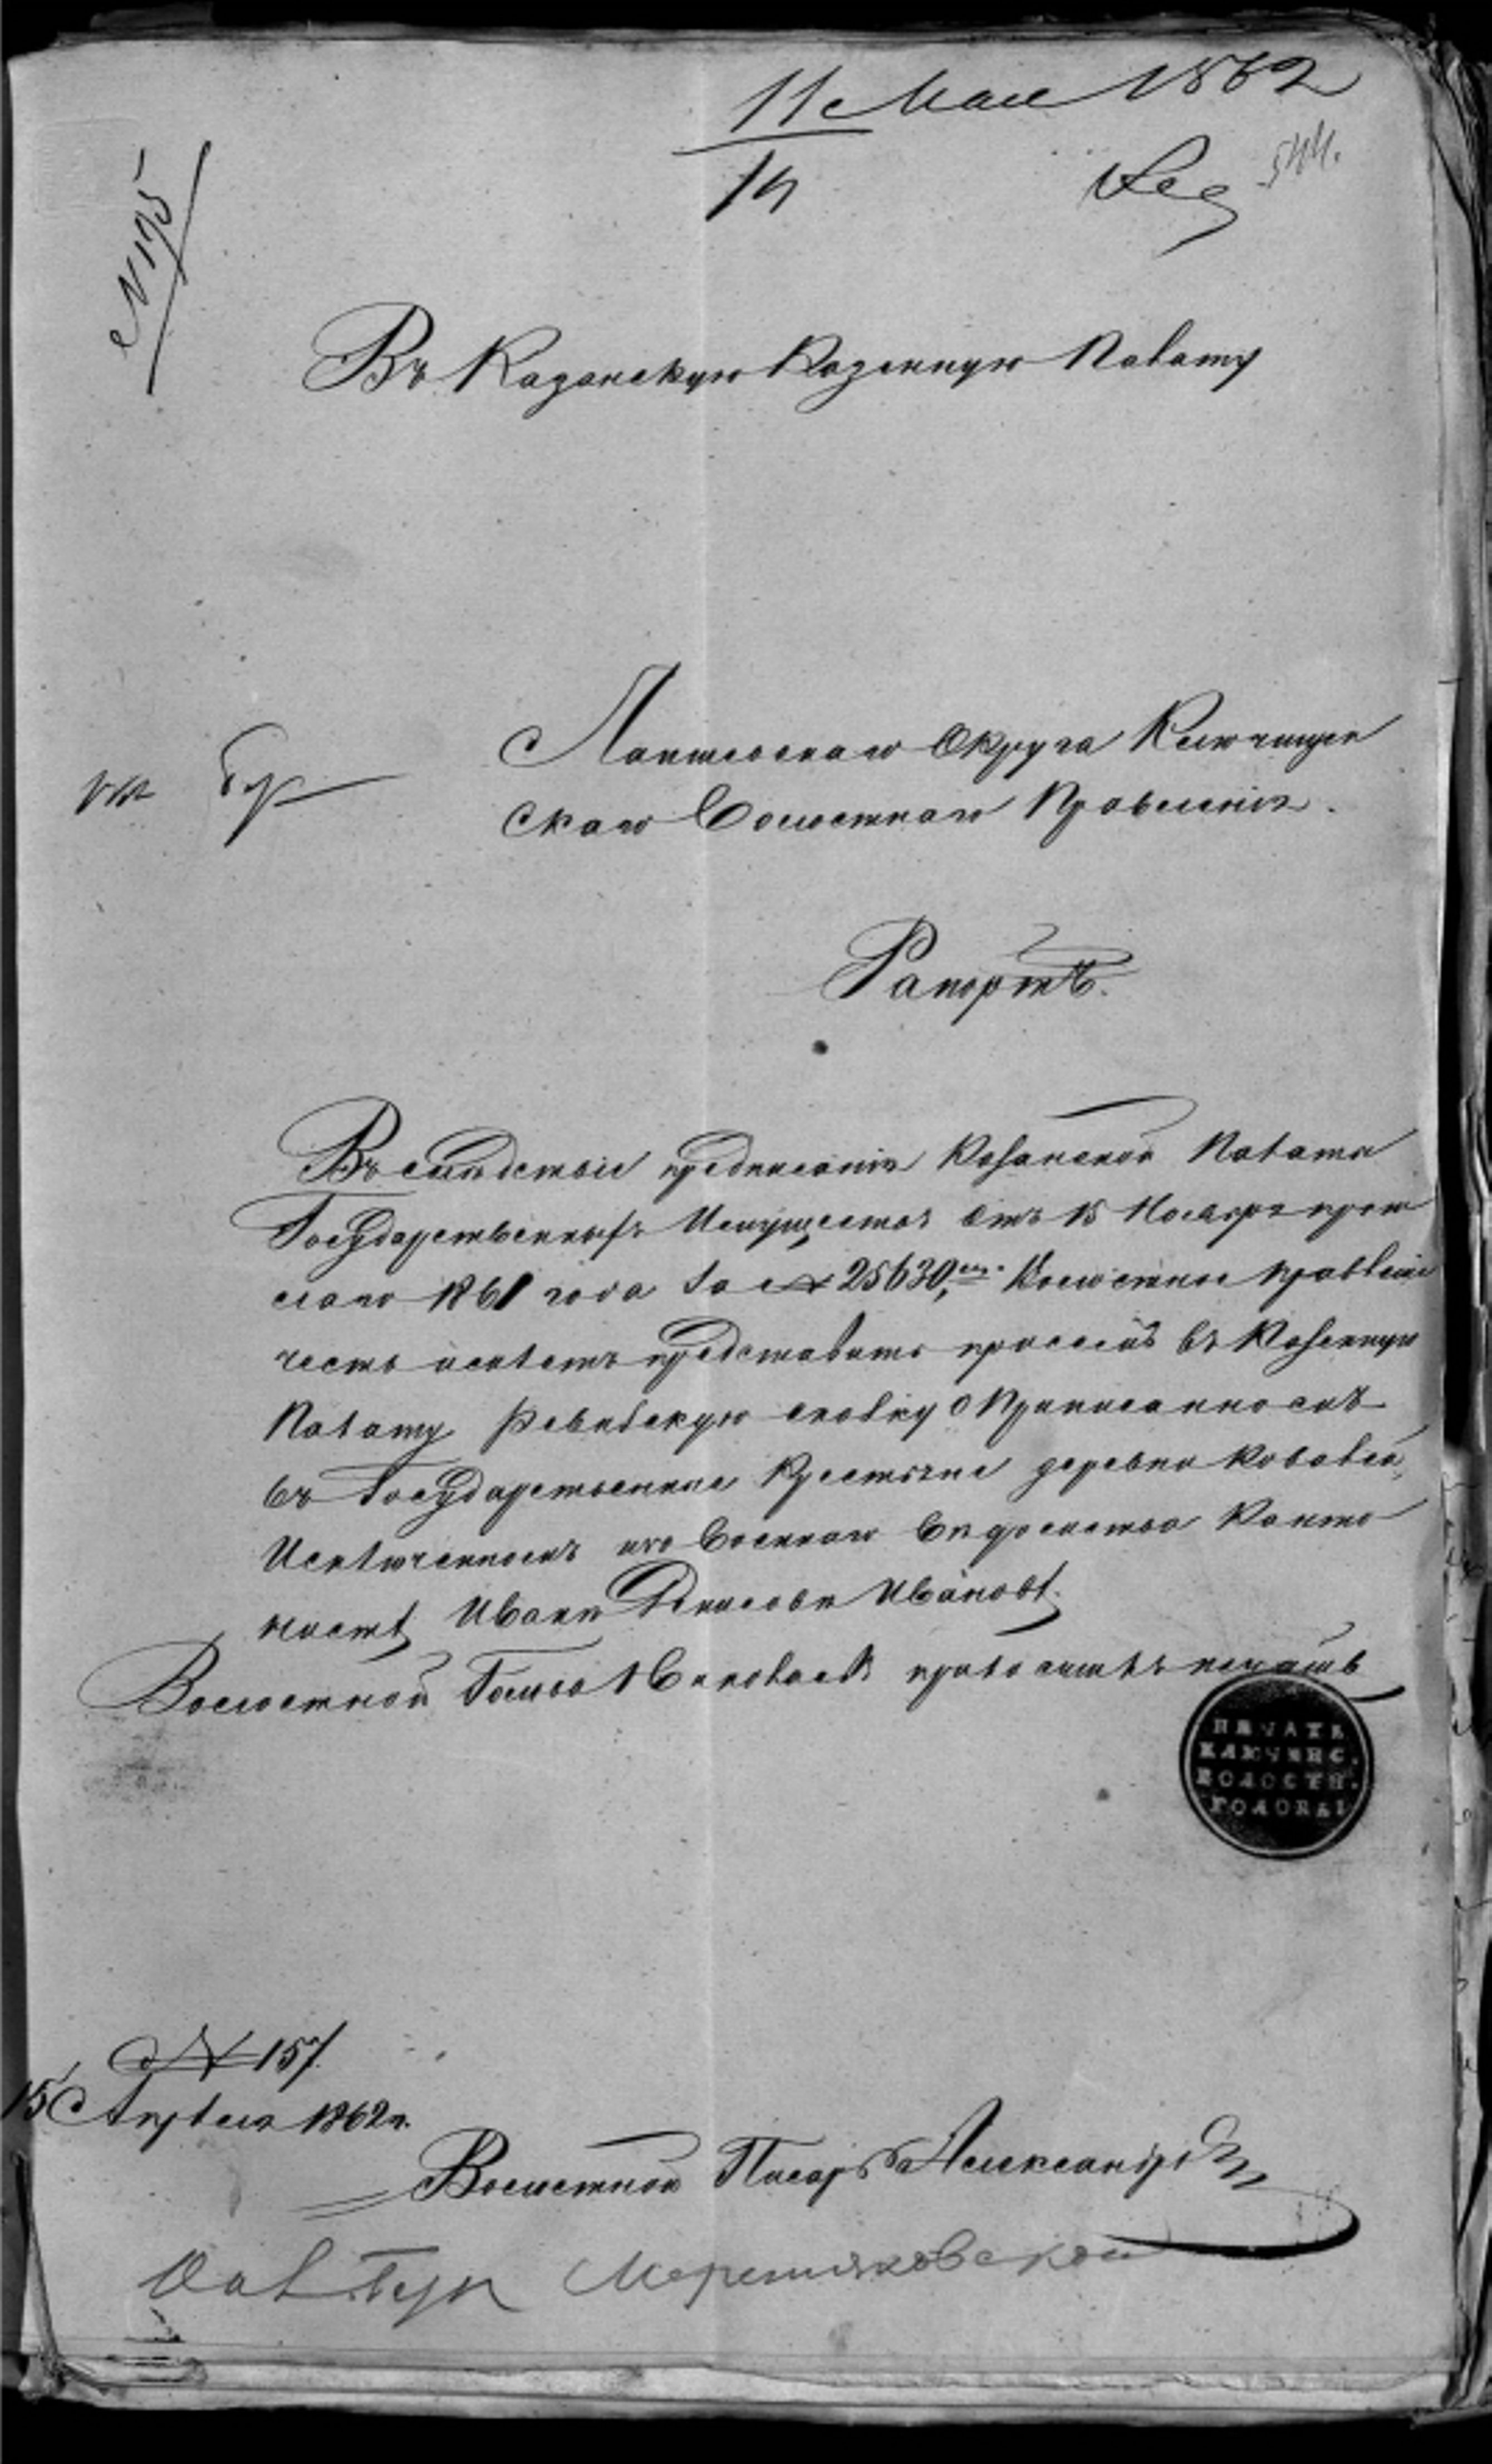 11 Мая 1862
14
544.
№ 195
Въ Казанскую Казенную Палату
Лаишевскаго Округа Ключищен
скаго Волостнаго Правленія.
Рапортъ.
Въ слѣдствіе предписанія Казанской Палаты
Государственныхъ Имуществъ отъ 15 Ноября прош
лаго 1861 года за № 25630, Волостное правленіе
честь имѣетъ представить при семъ въ Казенную
Палату Ревизскую сказку о Приписанномъ
въ Государственные Крестьяне деревни
Исключенномъ изъ Военнаго Вѣдомства Канто
нистѣ Иванѣ Денисовѣ Ивановѣ.
Волостной Голова приложилъ печать
ПЕЧАТЬ
КЛЮЧИЩС.
ВОЛОСТН.
ГОЛОВЫ
№ 157.
15 Апрѣля 1862 г.
Волостной Писарь Александровъ